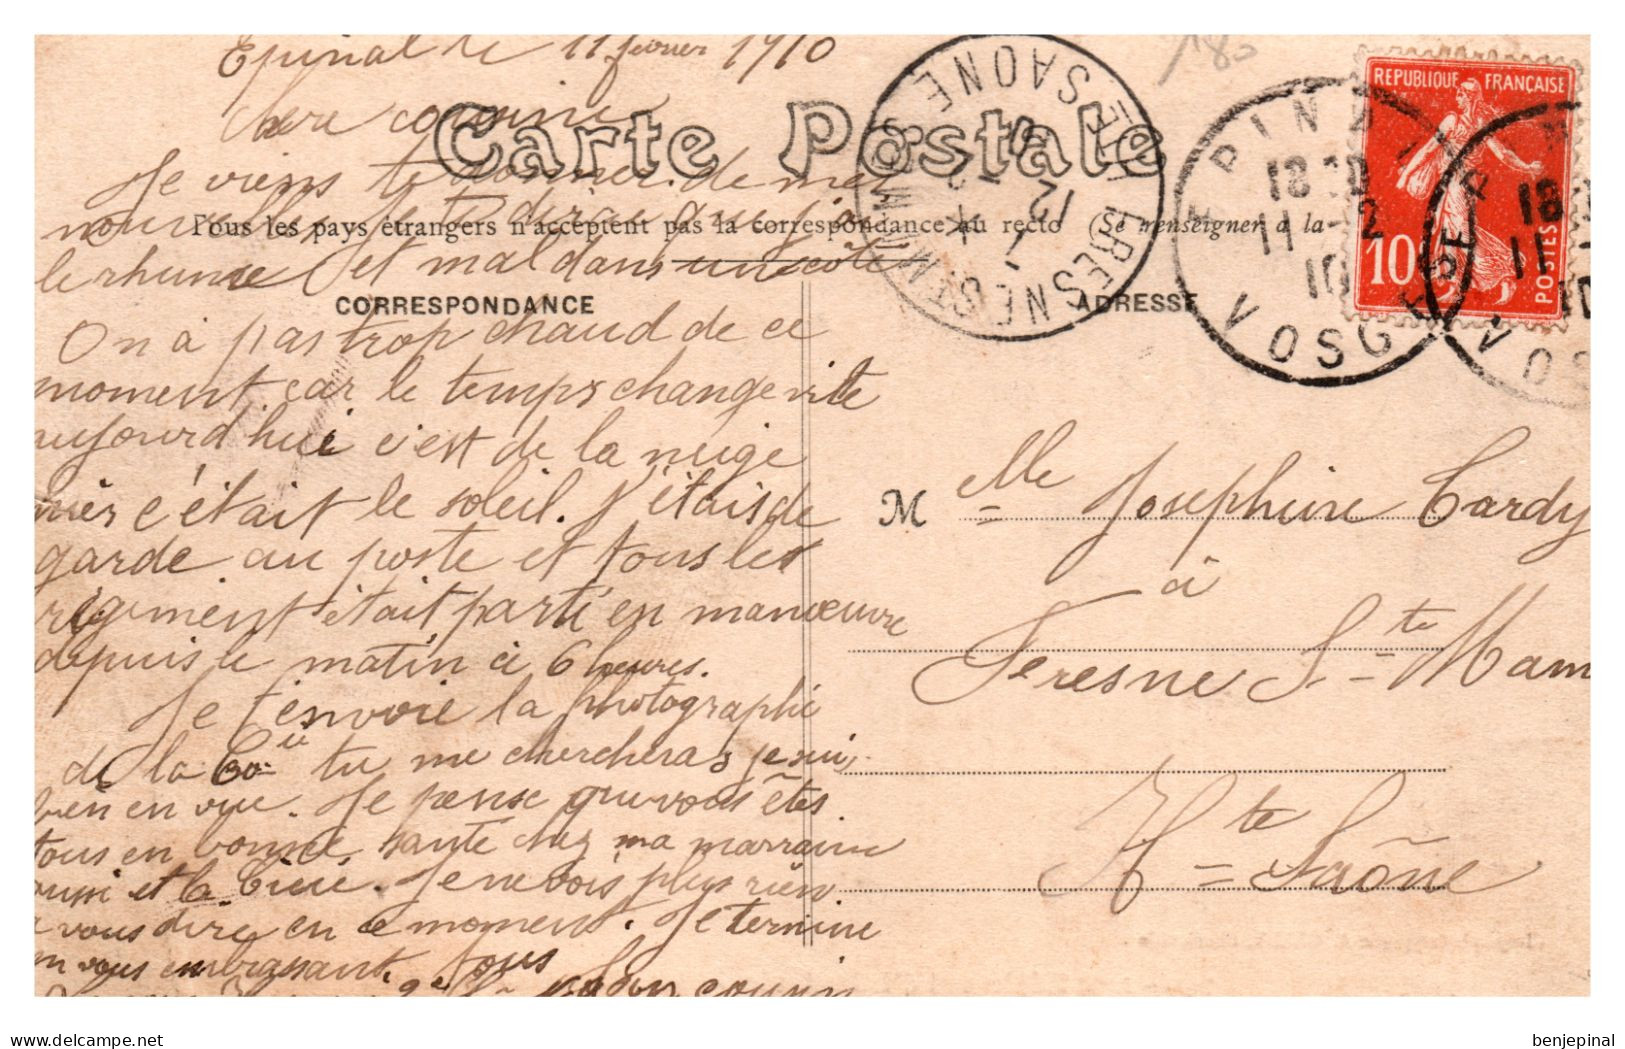 Epinal le 11 fevrier 1910
Chere cousine
Carte Postale
Je viens te donner de mes
nouvelles Je te dirai que j'ai
Tous les pays étrangers n'acceptent pas la correspondance au recto (Se renseigner à la
le rhume et mal dans un coté
CORRESPONDANCE
ADRESSE
On à pas trop chaud de ce
moment car le temps change vite
aujourd'hui c'est de la neige
hier c'était le soleil. J'étais de
garde au poste et tous les
régiment était parti en manœuvre
depuis le matin à 6 heures.
Je t'envoie la photographie
de la Cie tu me chercheras je suis
bien en vue. Je pense que vous êtes
tous en bonne santé chez ma marraine
aussi et la
Je ne vois plus rien
à vous dire en ce moment. Je termine
en vous embrassant tous
Ton cousin
M elle Josephine Cardy
à
Fresne St Mam
Hte Saône
REPUBLIQUE FRANÇAISE
10
POSTES
EPINAL
18 30
11 - 2
10
VOSGES
EPINAL
18
11
10
VOSGES
FRESNE ST MAMMES
HTE SAONE
12 - 2
10
180
benjepinal